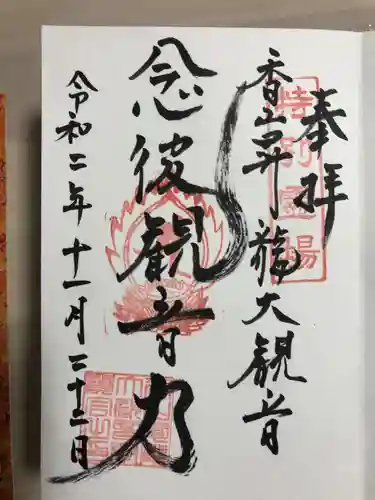 奉拝
特別霊場
香山昇龍大観音
念彼観音力
令和二年十一月二十二日